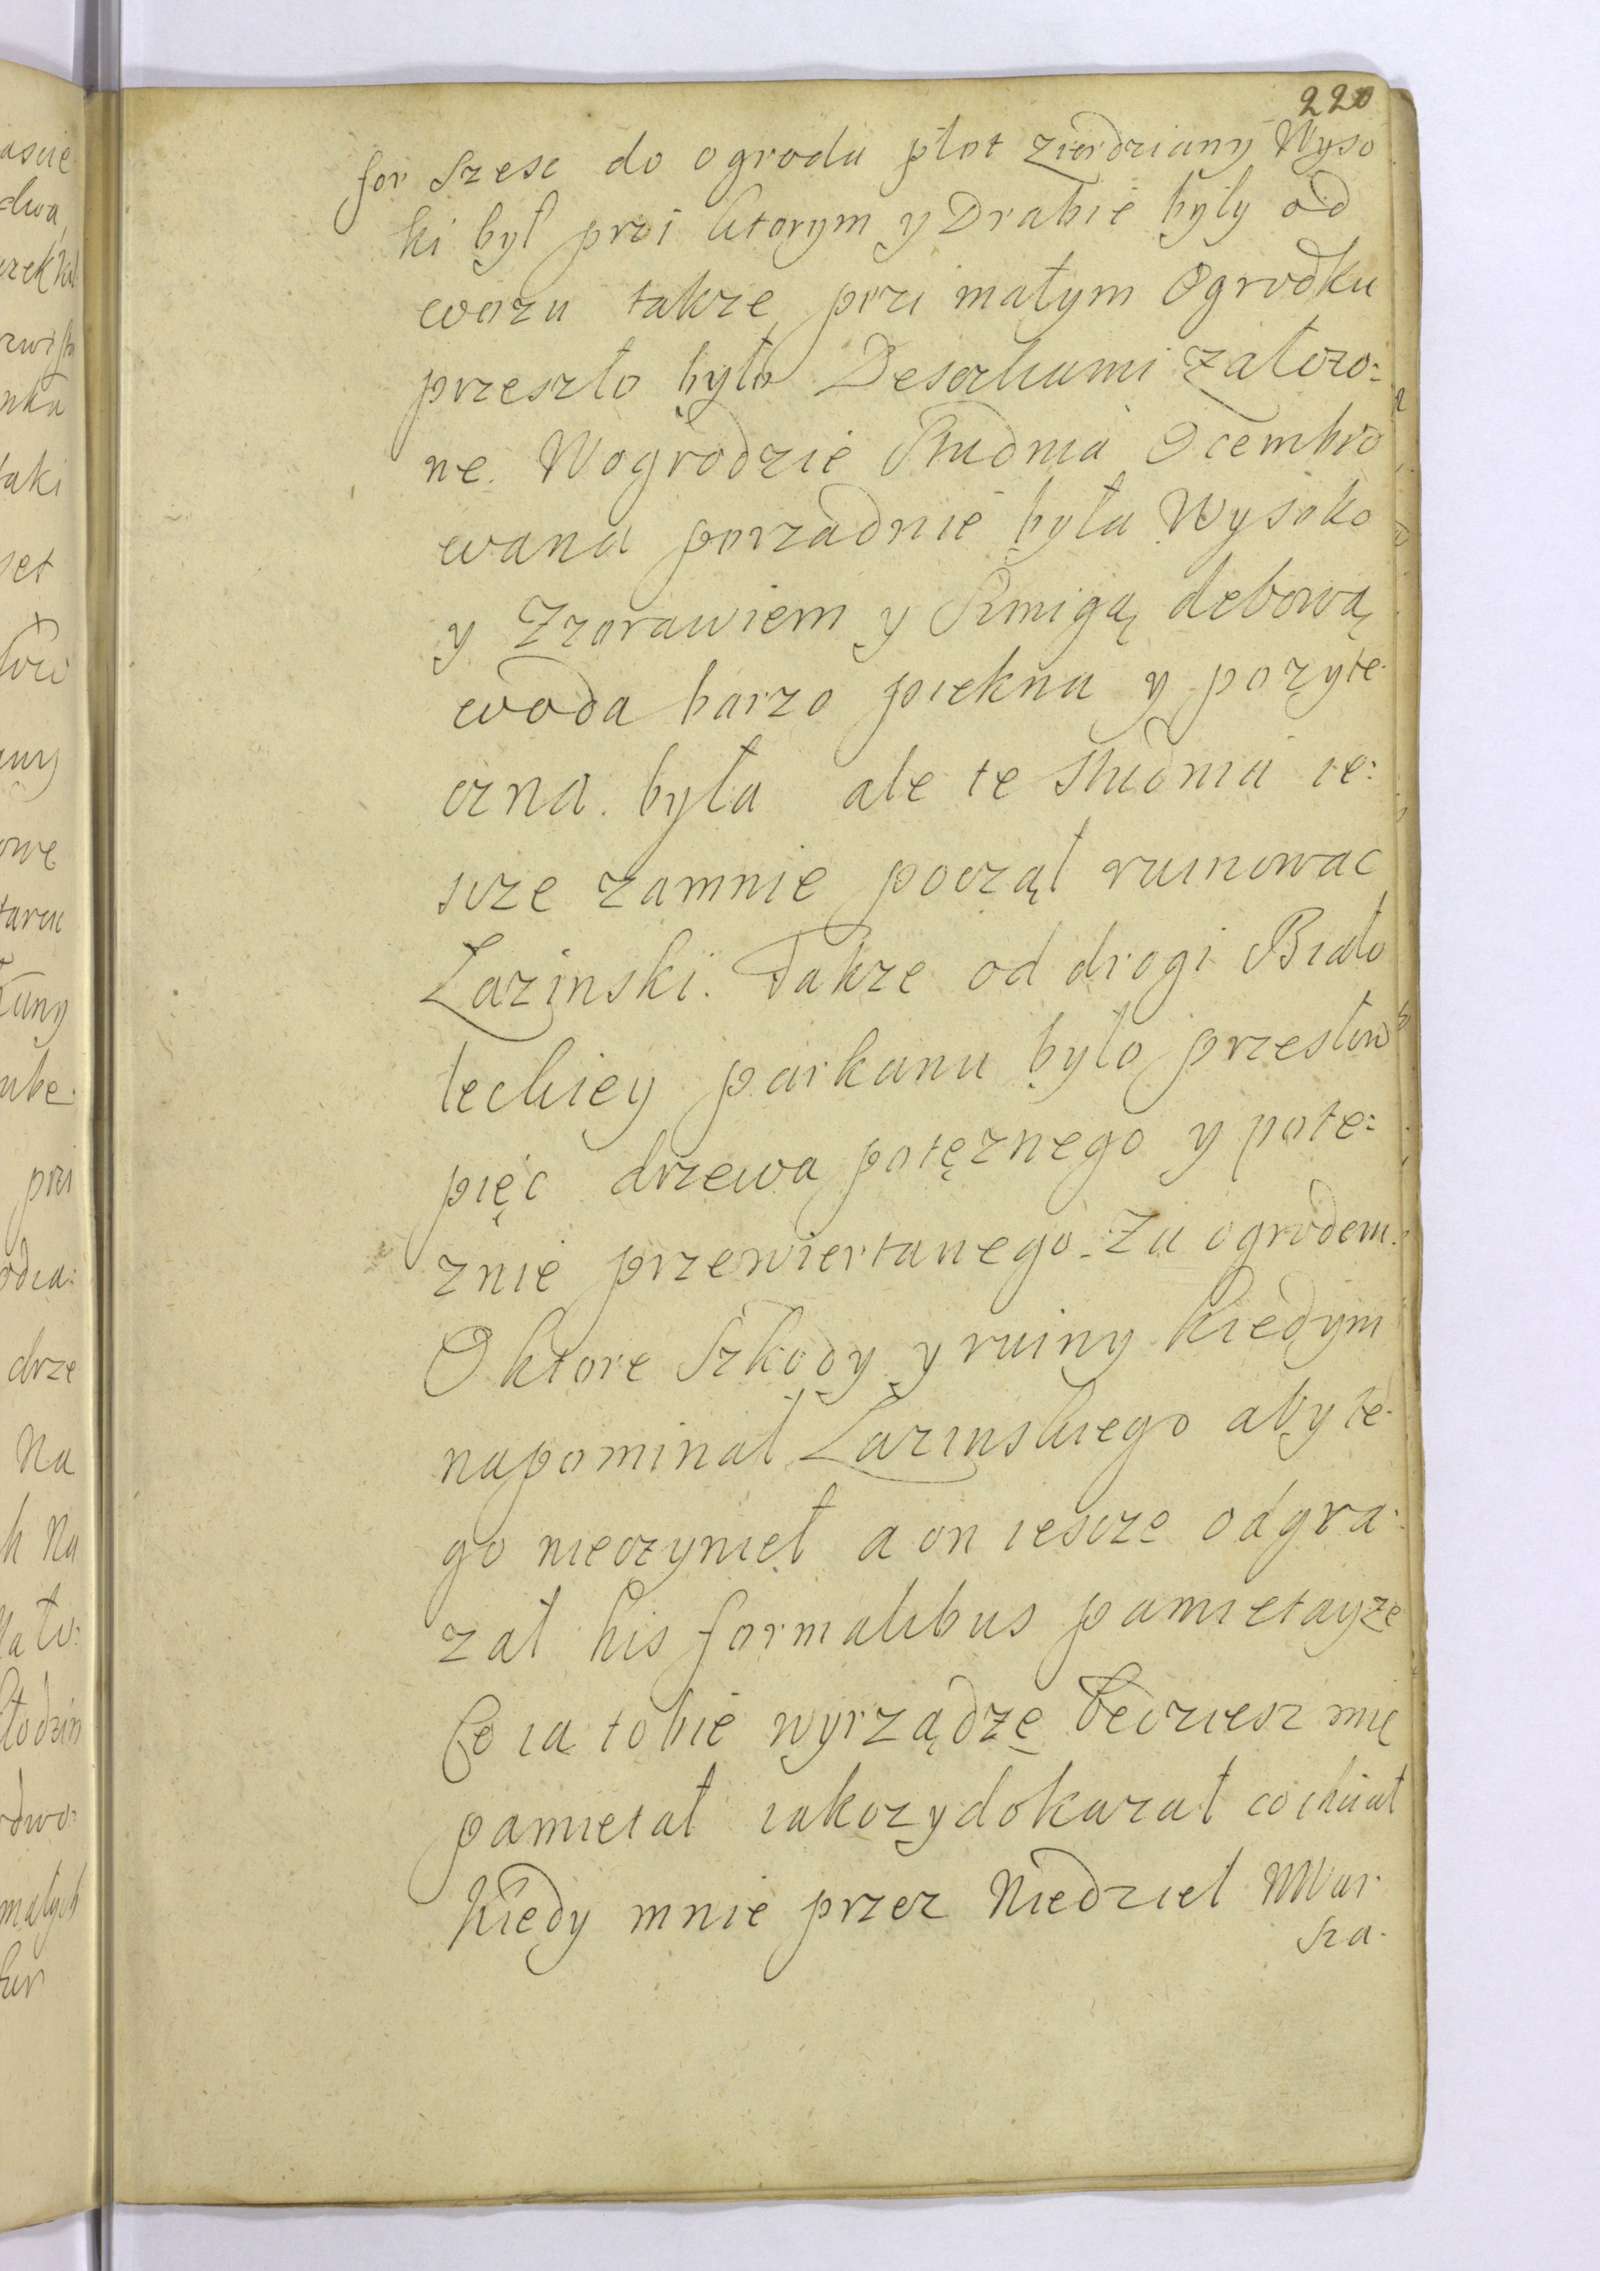 220
for szesc do ogrodu płot zierdziany Wyso
ki był przi ktorym y Drabie były od
wozu takze przi małym Ogrodku
przeszło było Desczkami załozo:
ne. Wogrodzie Studnia Ocembro
wana porzadnie była Wysoko
y Zzorawiem y Smigą debową
woda barzo piekna y pozyte
czna. była ale te studnia ie:
scze zamnie począł ruinowac
Lazinski. Takze od drogi Biało
łeckiey parkanu było przesłow
pięc drzewa potęznego y pote:
znie przewiertanego. Za ogrodem.
O ktore szkody y ruiny kiedym
napominał Lazinskiego aby te
go nieczynieł a on iescze odgra:
zał his formalibus pamietayze
Co ia tobie wyrządzę bedziesz mię
pamietał iakozy dokazał co chciał
Kiedy mnie przez Niedziel WWar
sza.